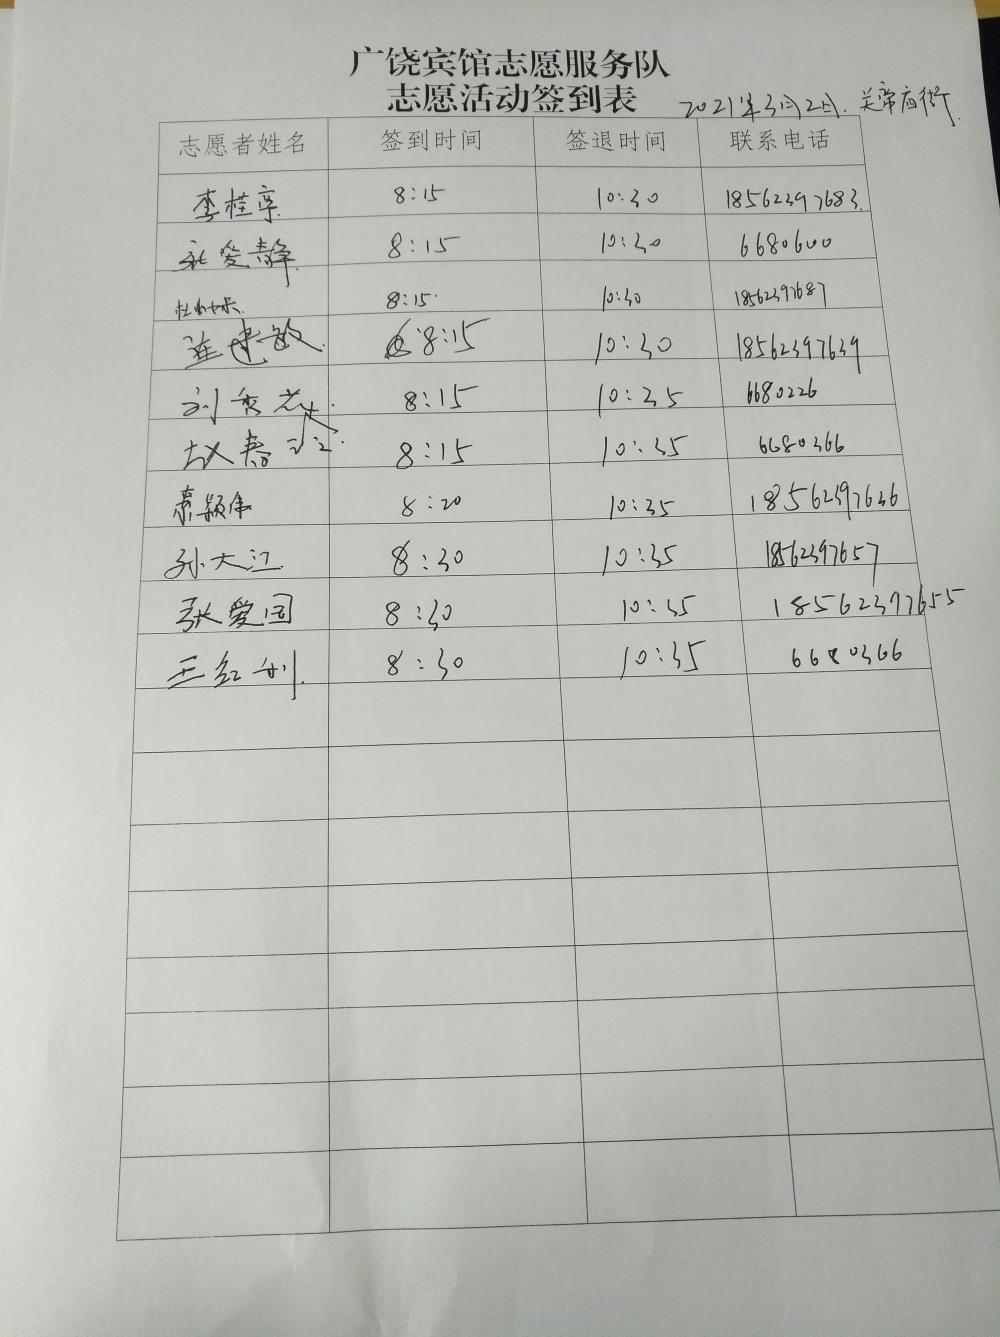 广饶宾馆志愿服务队
志愿活动签到表
2021年3月2日.关帝庙街.
志愿者姓名 签到时间 签退时间 联系电话
李桂亭 8:15 10:30 18562397683.
张爱静. 8:15 10:30 6680600
8:15. 10:30 18562397687
连建敏. 8:15 10:30 18562397639
刘秀芝. 8:15 10:35 6680226
赵春 8:15 10:35 6680366
颖伟 8:20 10:35 18562397636
孙大江. 8:30 10:35 18562397657
张爱国 8:30 10:35 18562397655
王红利. 8:30 10:35 6680366